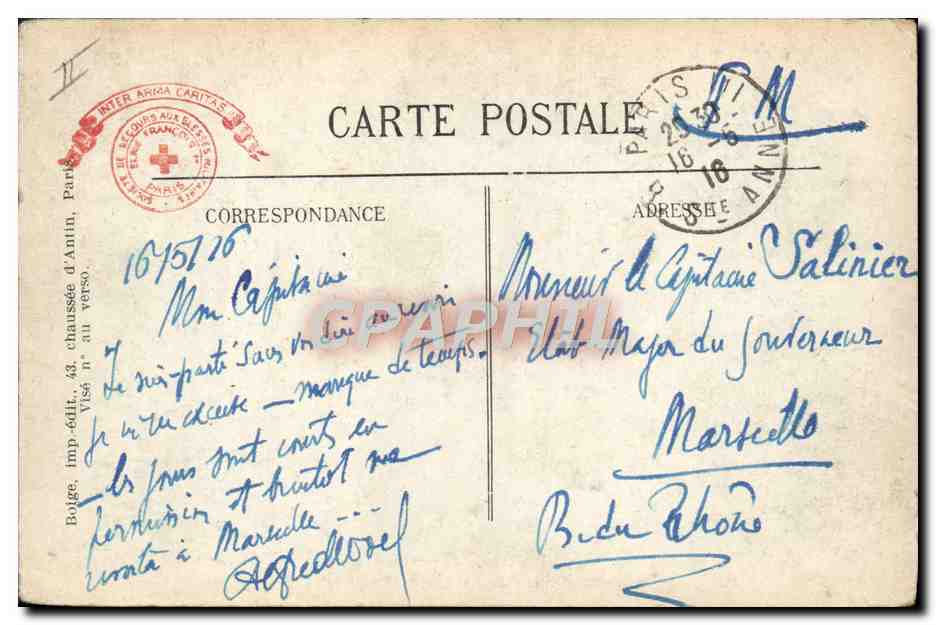 II
INTER ARMA CARITAS
SOCIÉTÉ DE SECOURS AUX BLESSÉS MILITAIRES
FRANÇOIS 1er
PARIS
CARTE POSTALE
F M
PARIS VIII
20 30
16 -5
16
R. Ste ANNE
CORRESPONDANCE
ADRESSE
Boige, imp.-édit., 43, chaussée d'Antin, Paris
Visé n° au verso.
16/5/16
Mon Capitaine
Je suis parti sans vous dire au revoir
je m'en excuse – manque de temps.
– les jours sont courts en
permission et bientôt me
voilà à Marseille ...
Monsieur le Capitaine Salinier
Etat Major du Gouverneur
Marseille
B. du Rhône
CPAPHIL